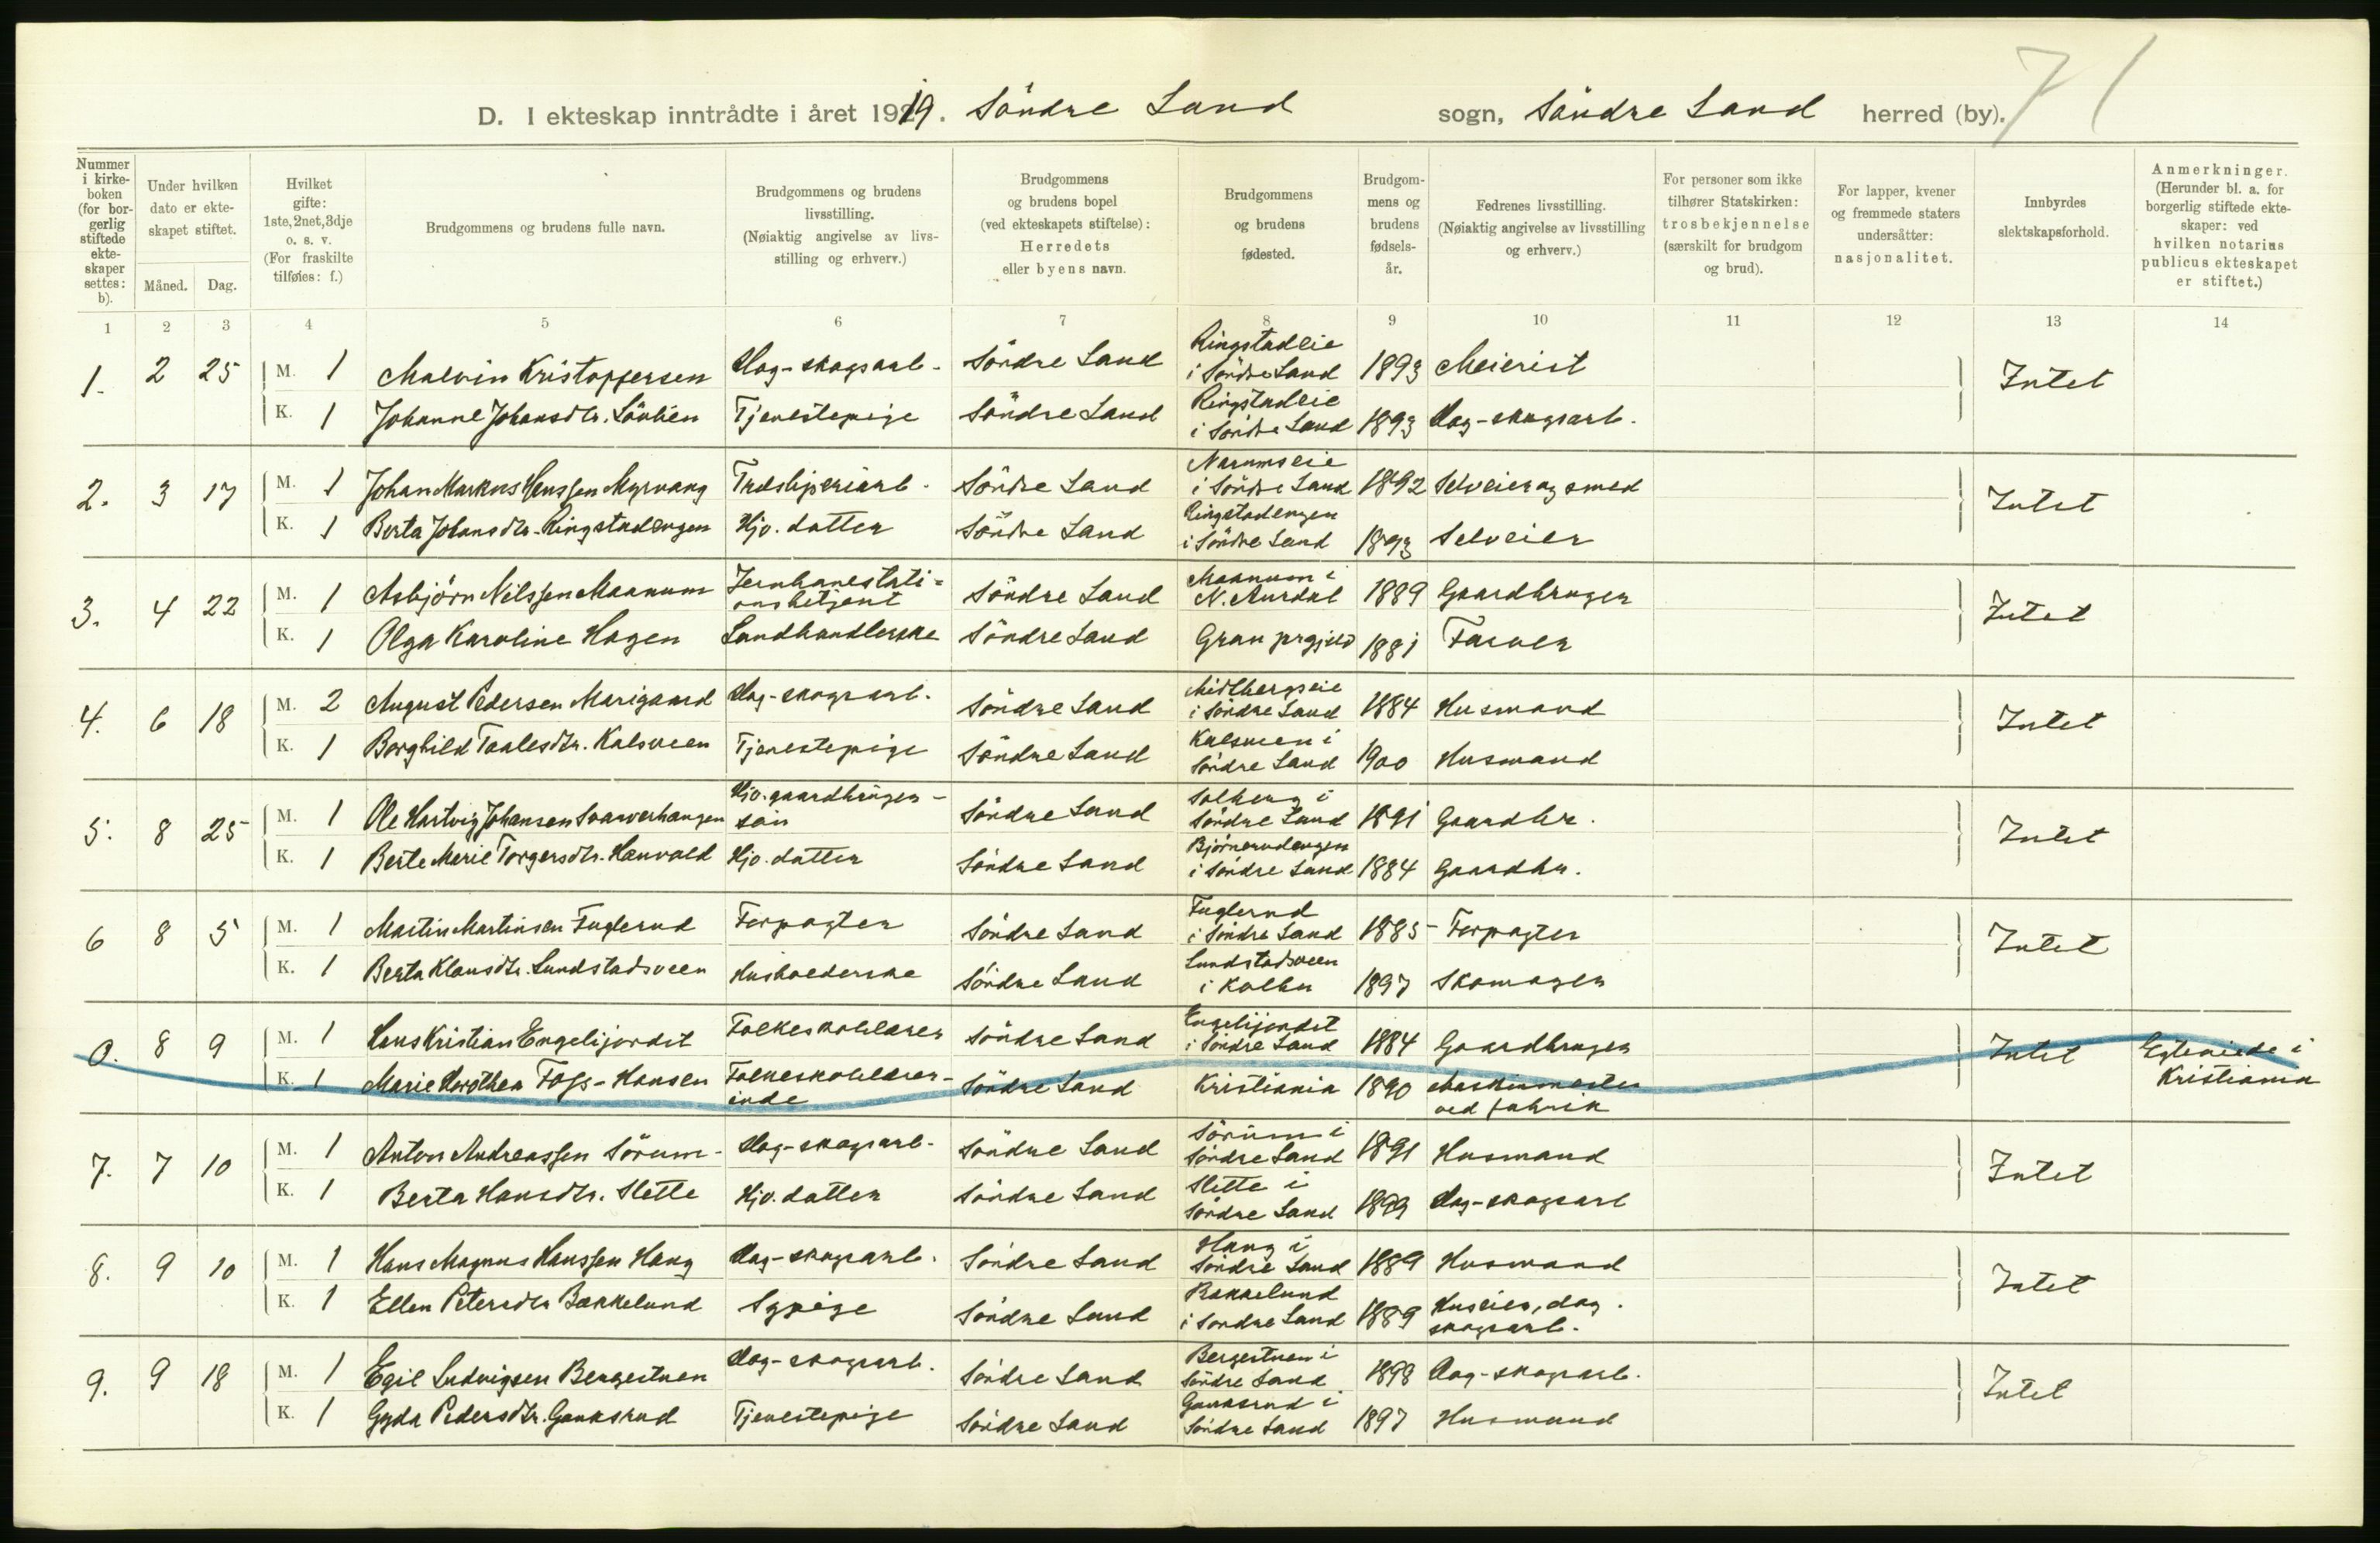 71
D. I ekteskap inntrådte i året 1919. Söndre Land sogn, Söndre Land herred (by).
Nummer i kirkeboken (for borgerlig stiftede ekteskaper settes: b).
Under hvilken dato er ekteskapet stiftet.
Måned. Dag.
Hvilket gifte: 1ste, 2net, 3dje o. s. v. (For fraskilte tilføies: f.)
Brudgommens og brudens fulle navn.
Brudgommens og brudens livsstilling. (Nøiaktig angivelse av livsstilling og erhverv.)
Brudgommens og brudens bopel (ved ekteskapets stiftelse): Herredets eller byens navn.
Brudgommens og brudens fødested.
Brudgommens og brudens fødselsår.
Fedrenes livsstilling. (Nøiaktig angivelse av livsstilling og erhverv.)
For personer som ikke tilhører Statskirken: trosbekjennelse (særskilt for brudgom og brud).
For lapper, kvener og fremmede staters undersåtter: nasjonalitet.
Innbyrdes slektskapsforhold.
Anmerkninger. (Herunder bl. a. for borgerlig stiftede ekteskaper: ved hvilken notarius publicus ekteskapet er stiftet.)
1 2 3 4 5 6 7 8 9 10 11 12 13 14
1. 2 25 M. 1 Malvin Kristoffersen Dag-skogsarb. Söndre Land Ringstadeie i Söndre Land 1893 Meierist Intet
K. 1 Johanne Johansdtr. Lövlien Tjenestepige Söndre Land Ringstadeie i Söndre Land 1893 Dag-skogsarb.
2. 3 17 M. 1 Johan Markus Hanssen Myrvang Træsliperiarb. Söndre Land Narumseie i Söndre Land 1892 Selveier og smed Intet
K. 1 Berta Johansdtr. Ringstadengen Hjv. datter Söndre Land Ringstadengen i Söndre Land 1893 Selveier
3. 4 22 M. 1 Asbjörn Nilssen Maanum Jernbanestationsbetjent Söndre Land Maanum i N. Aurdal 1889 Gaardbruger Intet
K. 1 Olga Karoline Hagen Landhandlerske Söndre Land Gran prgjeld 1881 Farver
4. 6 18 M. 2 August Pedersen Marigaard Dag-skogsarb. Söndre Land Midtbergseie i Söndre Land 1884 Husmand Intet
K. 1 Borghild Paalesdtr. Kalsveen Tjenestepige Söndre Land Kalsveen i Söndre Land 1900 Husmand
5. 8 25 M. 1 Ole Hartvig Johansen Svarverhaugen Hjv. gaardbruger-sön Söndre Land Solberg i Söndre Land 1891 Gaardbr. Intet
K. 1 Berte Marie Torgersdtr. Haavold Hjv. datter Söndre Land Björnerudengen i Söndre Land 1884 Gaardbr.
6 8 5 M. 1 Martin Martinsen Fuglerud Forpagter Söndre Land Fuglerud i Söndre Land 1885 Forpagter Intet
K. 1 Berta Klausdtr. Lundstadsveen Husholderske Söndre Land Lundstadsveen i Kolbu 1897 Skomager
0. 8 9 M. 1 Hans Kristian Engelijordet Folkeskolelærer Söndre Land Engelijordet i Söndre Land 1884 Gaardbruger Intet Egteviede i Kristiania
K. 1 Marie Dorothea Foss-Hansen Folkeskolelærerinde Söndre Land Kristiania 1890 Maskinmester ved fabrik
7. 7 10 M. 1 Anton Andreassen Sörum Dag-skogsarb. Söndre Land Sörum i Söndre Land 1891 Husmand Intet
K. 1 Berta Hansdtr. Slette Hjv. datter Söndre Land Slette i Söndre Land 1899 Dag-skogsarb
8. 9 10 M. 1 Hans Magnus Hanssen Haug Dag-skogsarb. Söndre Land Haug i Söndre Land 1889 Husmand Intet
K. 1 Ellen Petersdtr Bakkelund Sypige Söndre Land Bakkelund i Söndre Land 1889 Huseier, dag. skogsarb.
9. 9 18 M. 1 Egil Ludvigsen Bergestuen Dag-skogsarb. Söndre Land Bergestuen i Söndre Land 1898 Dag-skogsarb. Intet
K. 1 Gyda Pedersdtr. Gaukerud Tjenestepige Söndre Land Gaukerud i Söndre Land 1897 Husmand